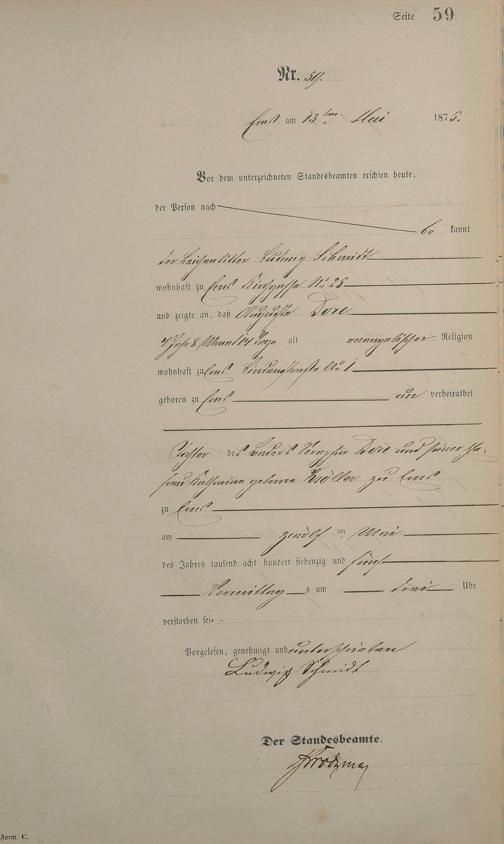 Seite 59
Nr. 59.
Ems am 13ten Mai 1875.
Vor dem unterzeichneten Standesbeamten erschien heute,
der Person nach
be kannt
der Leichenbitter Ludwig Schmidt
wohnhaft zu Ems Kirchgasse No 25
und zeigte an, daß Auguste Dore
8 Monat 14 Tage alt evangelischer Religion
wohnhaft zu Ems No 1
geboren zu Ems un verheirathet
Tochter des Dore und seiner Ehe-
frau Katharine geborne Kröller zu Ems
zu Ems
am zwölf ten Mai
des Jahres tausend acht hundert siebenzig und fünf
Vormittag s um drei Uhr
verstorben sei.
Vorgelesen, genehmigt und unterschrieben
Ludwig Schmidt
Der Standesbeamte.
Form. C.